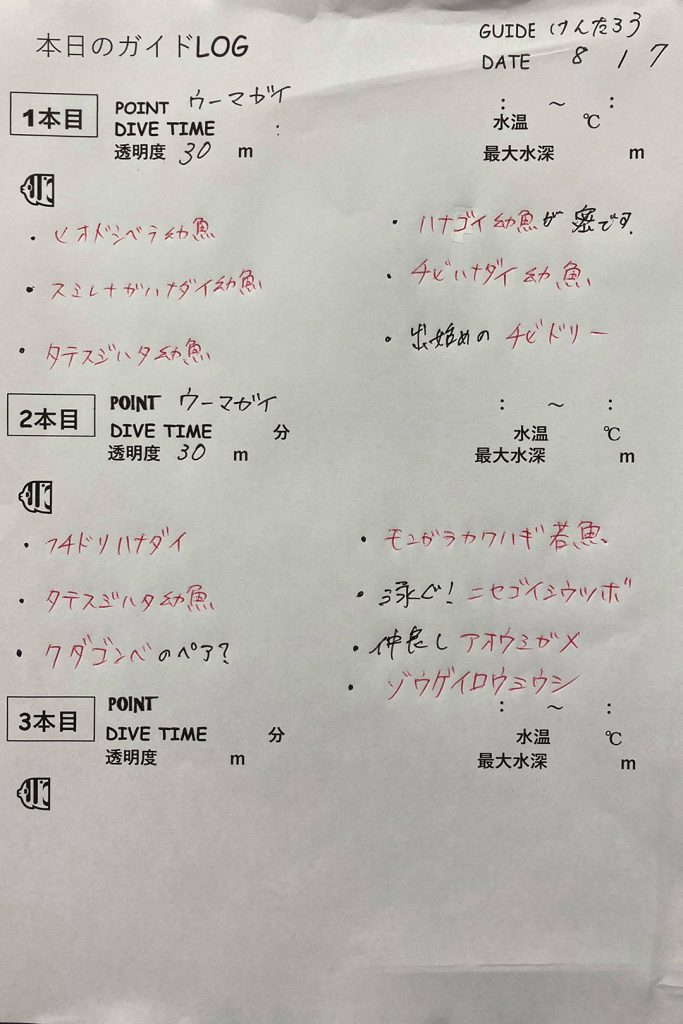 本日のガイドLOG
GUIDE けんたろう
DATE 8 17
1本目
POINT ウーマガイ
: ～ :
DIVE TIME :
水温 ℃
透明度 30 m
最大水深 m
・ヒオドシベラ幼魚
・ハナゴイ幼魚が密です。
・スミレナガハナダイ幼魚
・チビハナダイ幼魚
・タテスジハタ幼魚
・出始めのチビドリー
2本目
POINT ウーマガイ
: ～ :
DIVE TIME 分
水温 ℃
透明度 30 m
最大水深 m
・フチドリハナダイ
・モンガラカワハギ若魚
・タテスジハタ幼魚
・泳ぐ!ニセゴイシウツボ
・クダゴンベのペア?
・仲良しアオウミガメ
・ゾウゲイロウミウシ
3本目
POINT
: ～ :
DIVE TIME 分
水温 ℃
透明度 m
最大水深 m